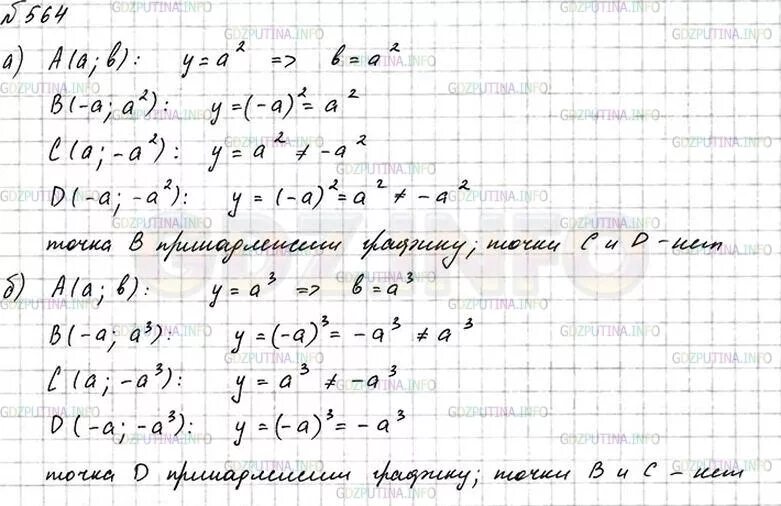 № 564
а) A(a; в): y = a² => в = a²
B(-a; a²): y = (-a)² = a²
C(a; -a²): y = a² ≠ -a²
D(-a; -a²): y = (-a)² = a² ≠ -a²
точка B принадлежит графику; точки C и D - нет
б) A(a; в): y = a³ => в = a³
B(-a; a³): y = (-a)³ = -a³ ≠ a³
C(a; -a³): y = a³ ≠ -a³
D(-a; -a³): y = (-a)³ = -a³
точка D принадлежит графику; точки B и C - нет
GDZ.INFO
GDZPUTINA.INFO